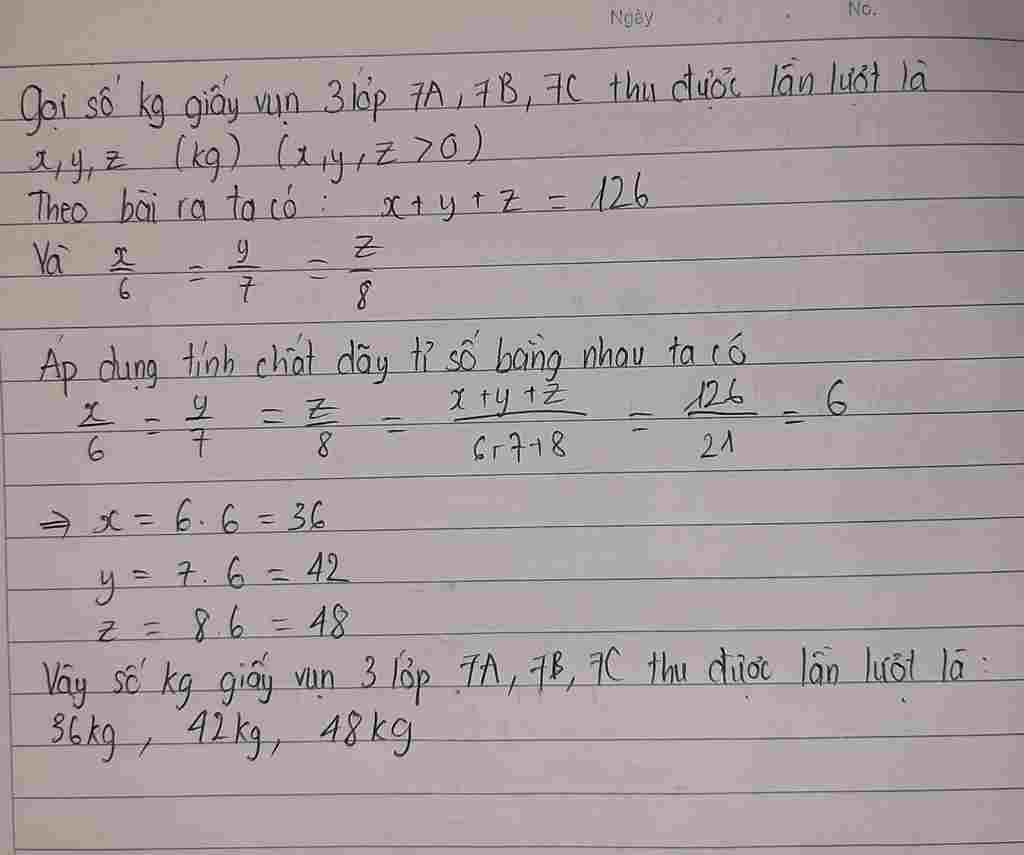 Ngày No.
Gọi số kg giấy vụn 3 lớp 7A, 7B, 7C thu được lần lượt là
x, y, z (kg) (x, y, z > 0)
Theo bài ra ta có : x + y + z = 126
Và x/6 = y/7 = z/8
Áp dụng tính chất dãy tỉ số bằng nhau ta có
x/6 = y/7 = z/8 = (x + y + z)/(6+7+8) = 126/21 = 6
⇒ x = 6 . 6 = 36
y = 7 . 6 = 42
z = 8 . 6 = 48
Vậy số kg giấy vụn 3 lớp 7A, 7B, 7C thu được lần lượt là :
36kg , 42kg, 48kg